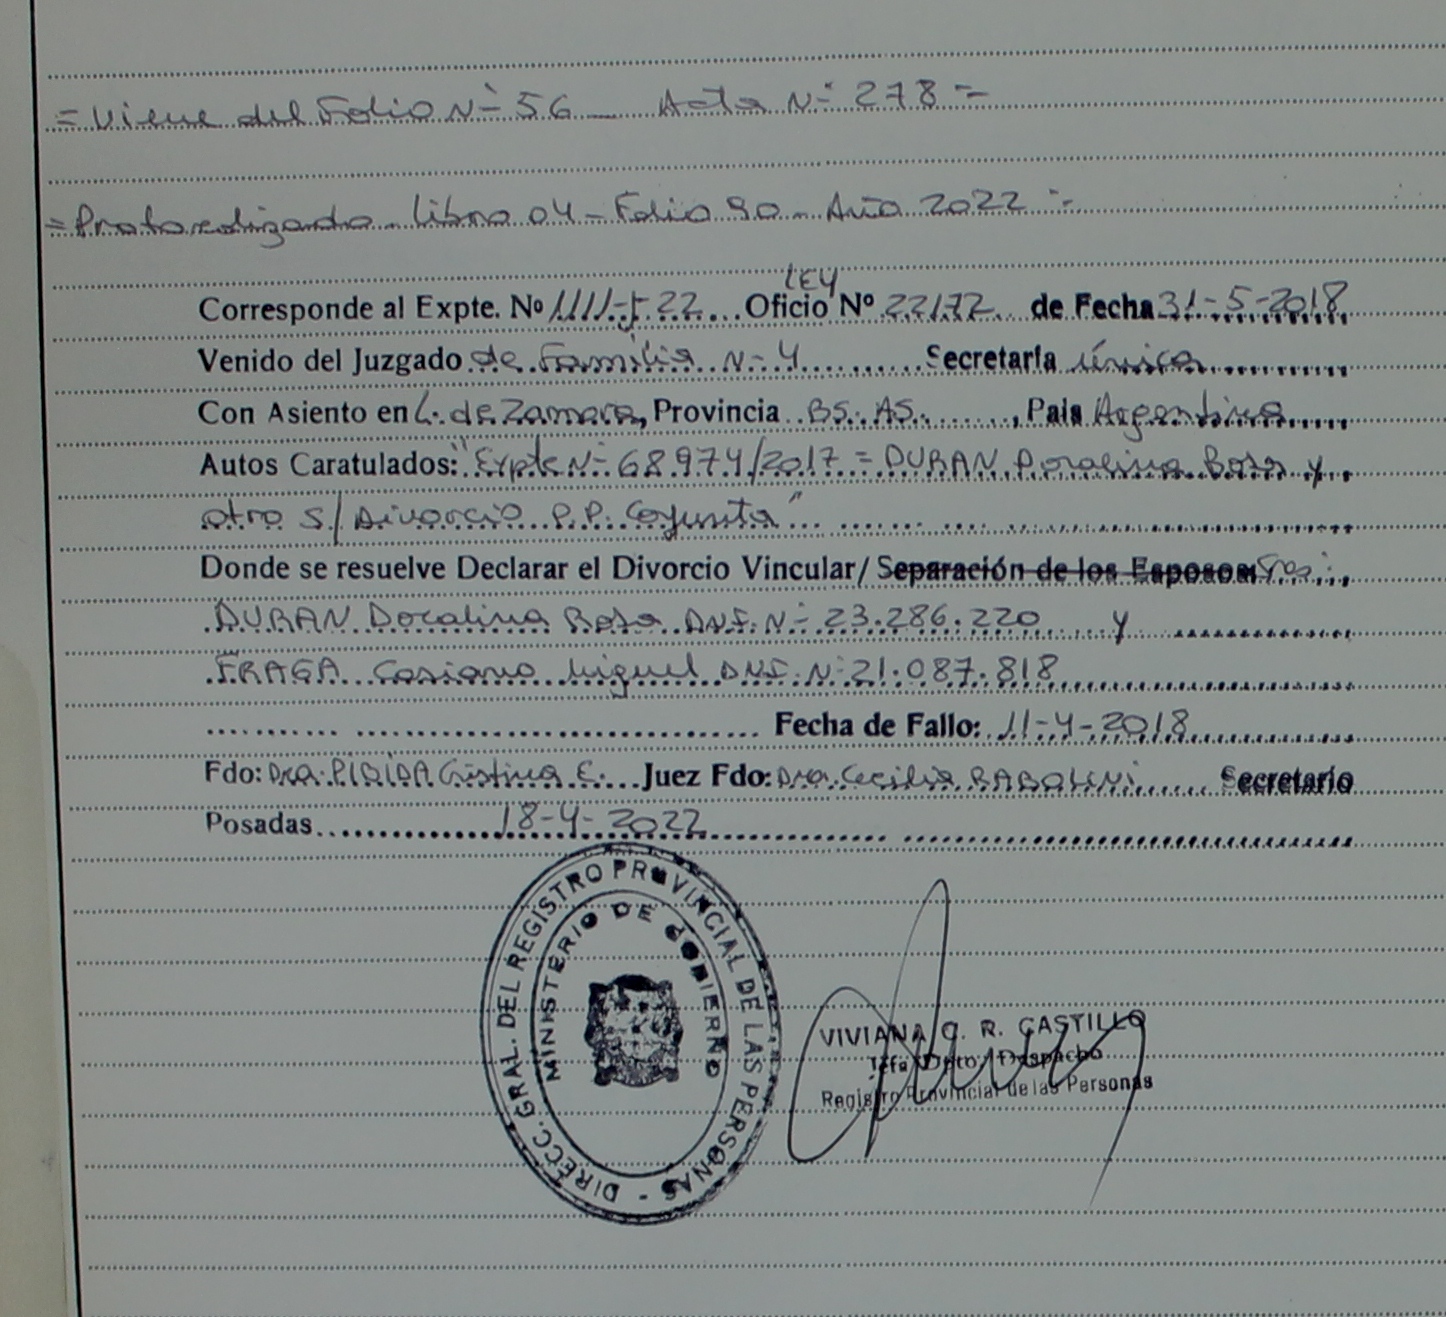 = Viene del Folio Nº 56 - Acta Nº 278 =
= Protocolizado - Libro 04 - Folio 90 - Año 2022 =
LEY
Corresponde al Expte. Nº 1111-J-22 Oficio Nº 22172 de Fecha 31-5-2018
Venido del Juzgado de Familia Nº 4 Secretaría única
Con Asiento en L. de Zamora, Provincia BS. AS., País Argentina
Autos Caratulados: "Expte Nº 68974/2017 = DURAN Doralina Rosa y
otro S/ Divorcio P.P. Cojunta"
Donde se resuelve Declarar el Divorcio Vincular/ Separación de los Esposos Sres:
DURAN Doralina Rosa DNI. Nº 23.286.220 y
FRAGA Casiano Miguel DNI. Nº 21.087.818
Fecha de Fallo: 11-4-2018
Fdo: Dra. Cristina E. Juez Fdo: Dra. Cecilia Secretario
Posadas 18-4-2022
DIRECC. GRAL. DEL REGISTRO PROVINCIAL DE LAS PERSONAS -
MINISTERIO DE GOBIERNO
VIVIANA C. R. CASTILLO
Jefa Dpto. Despacho
Registro Provincial de las Personas